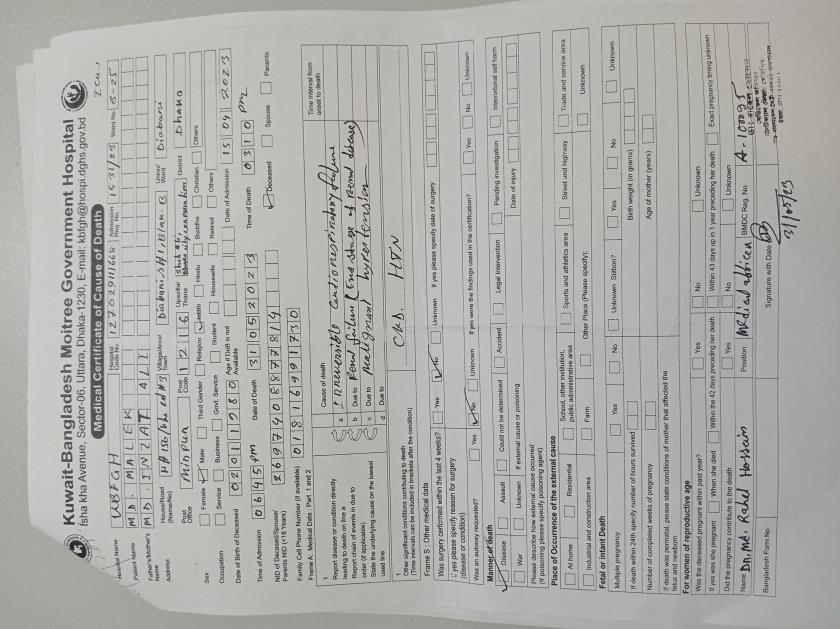 Kuwait-Bangladesh Moitree Government Hospital
Isha kha Avenue, Sector-06, Uttara, Dhaka-1230, E-mail: kbfgh@hospi.dghs.gov.bd
Medical Certificate of Cause of Death
ICU
Hospital Name Hospital Code No. Admission Reg. No. 1531/23 Ward No.
Patient Name MD. MALEK
Father's/Mother's Name MD. INZAT ALI
Address House/Road (Name/No) Village/Area/ Town Union/ Ward Diabari
Post Office Post Code Upazila/ Thana District Dhaka
Sex Female Male Third Gender Religion Islam Hindu Buddha Christian Others
Occupation Service Business Govt. Service Student Housewife Retired Others
Date of Birth of Deceased 02011980 Age if DoB is not Available Date of Admission 15 04 2023
Time of Admission 0645 pm Date of Death 31052023 Time of Death 0310 pm
NID of Deceased/Spouse/ Parents NID (<18 Years) 2697408877814 Deceased Spouse Parents
Family Cell Phone Number (if available) 01816991730
Frame A: Medical Data - Part 1 and 2
1 Report disease or condition directly leading to death on line a
Report chain of events in due to order (if applicable)
State the underlying cause on the lowest used line
Cause of death Time interval from onset to death
a Irreversible cardiorespiratory failure
b Due to Renal failure (End stage of Renal disease)
c Due to Malignant hypertension
d Due to
2 Other significant conditions contributing to death
(Time intervals can be included in brackets after the condition)
CKD. HTN
Frame S : Other medical data
Was surgery performed within the last 4 weeks? Yes No Unknown If yes please specify date of surgery
If yes please specify reason for surgery (disease or condition)
Was an autopsy requested? Yes No Unknown If yes were the findings used in the certification? Yes No Unknown
Manner of death
Disease Assault Could not be determined Accident Legal Intervention Pending investigation International self harm
War Unknown If external cause or poisoning Date of injury
Please describe how external cause occurred
(If poisoning please specify poisoning agent)
Place of Occurrence of the external cause
At home Residential School, other institution, public administrative area Sports and athletics area Street and highway Trade and service area
Industrial and construction area Farm Other Place (Please specify): Unknown
Fetal or infant Death
Multiple pregnancy Yes No Unknown Stilbon? Yes No Unknown
If death within 24h specify number of hours survived Birth weight (in grams)
Number of completed weeks of pregnancy Age of mother (years)
If death was perinatal, please state conditions of mother that affected the fetus and newborn
For women of reproductive age
Was the deceased pregnant within past year? Yes No Unknown
If yes was she pregnant When she died Within the 42 days preceding her death Within 43 days up in 1 year preceding her death Exact pregnancy timing unknown
Did the pregnancy contribute to the death Yes No Unknown
Name Dr. Md. Rasel Hossain Position Medical officer BMDC Reg. No. A-100095
Bangladesh Form No Signature with Date
31/05/23